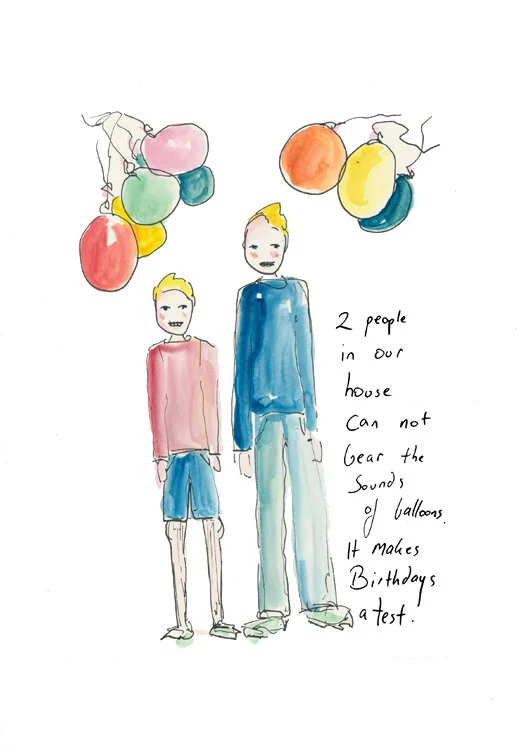 2 people
in our
house
Can not
bear the
Sounds
of balloons.
It makes
Birthdays
a test.